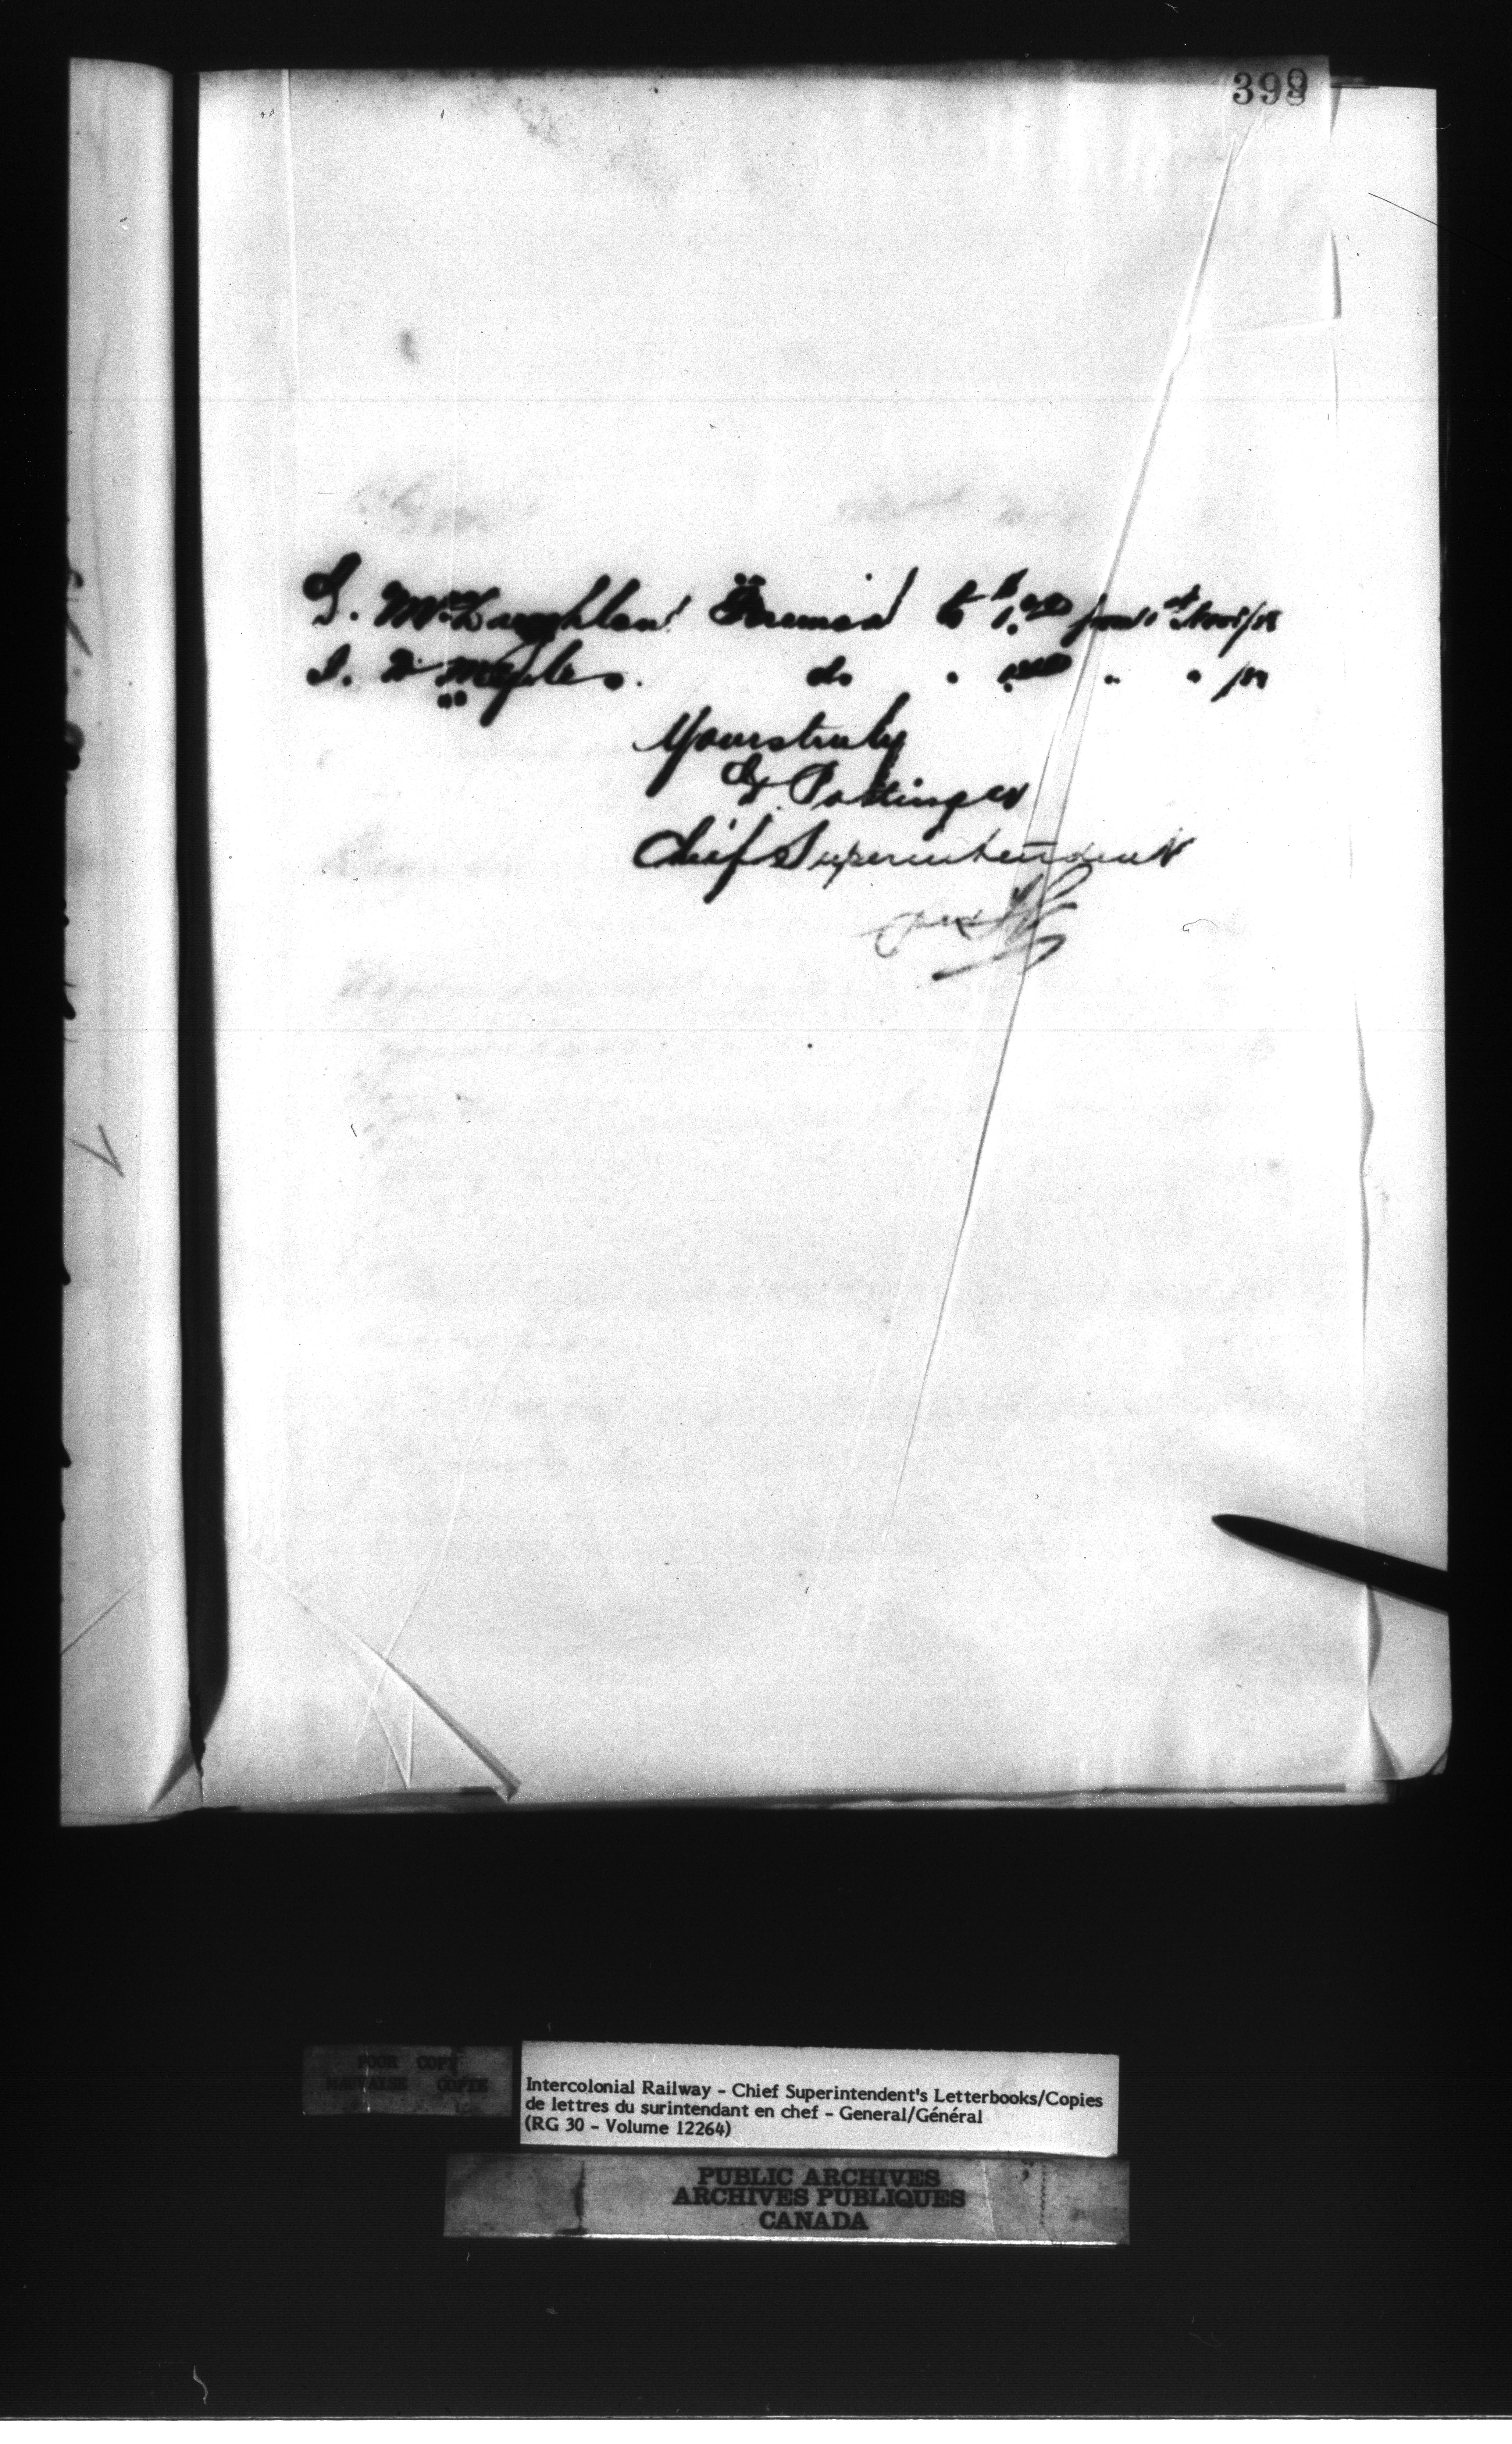 399
G. McLaughlan Fireman to from 1st Nov/
do " " "
Yours truly
D Pottinger
Chief Superintendent
per
POOR COPY
MAUVAISE COPIE
Intercolonial Railway - Chief Superintendent's Letterbooks/Copies
de lettres du surintendant en chef - General/Général
(RG 30 - Volume 12264)
PUBLIC ARCHIVES
ARCHIVES PUBLIQUES
CANADA